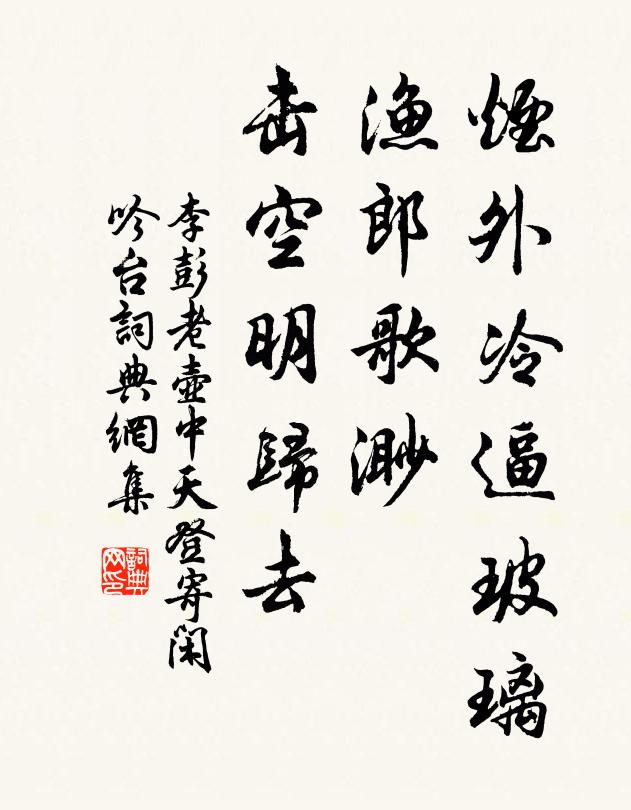 煙外冷逼玻璃
漁郎歌渺
击空明歸去
李彭老壺中天登寄闲
吟台詞典網集
詞典网印